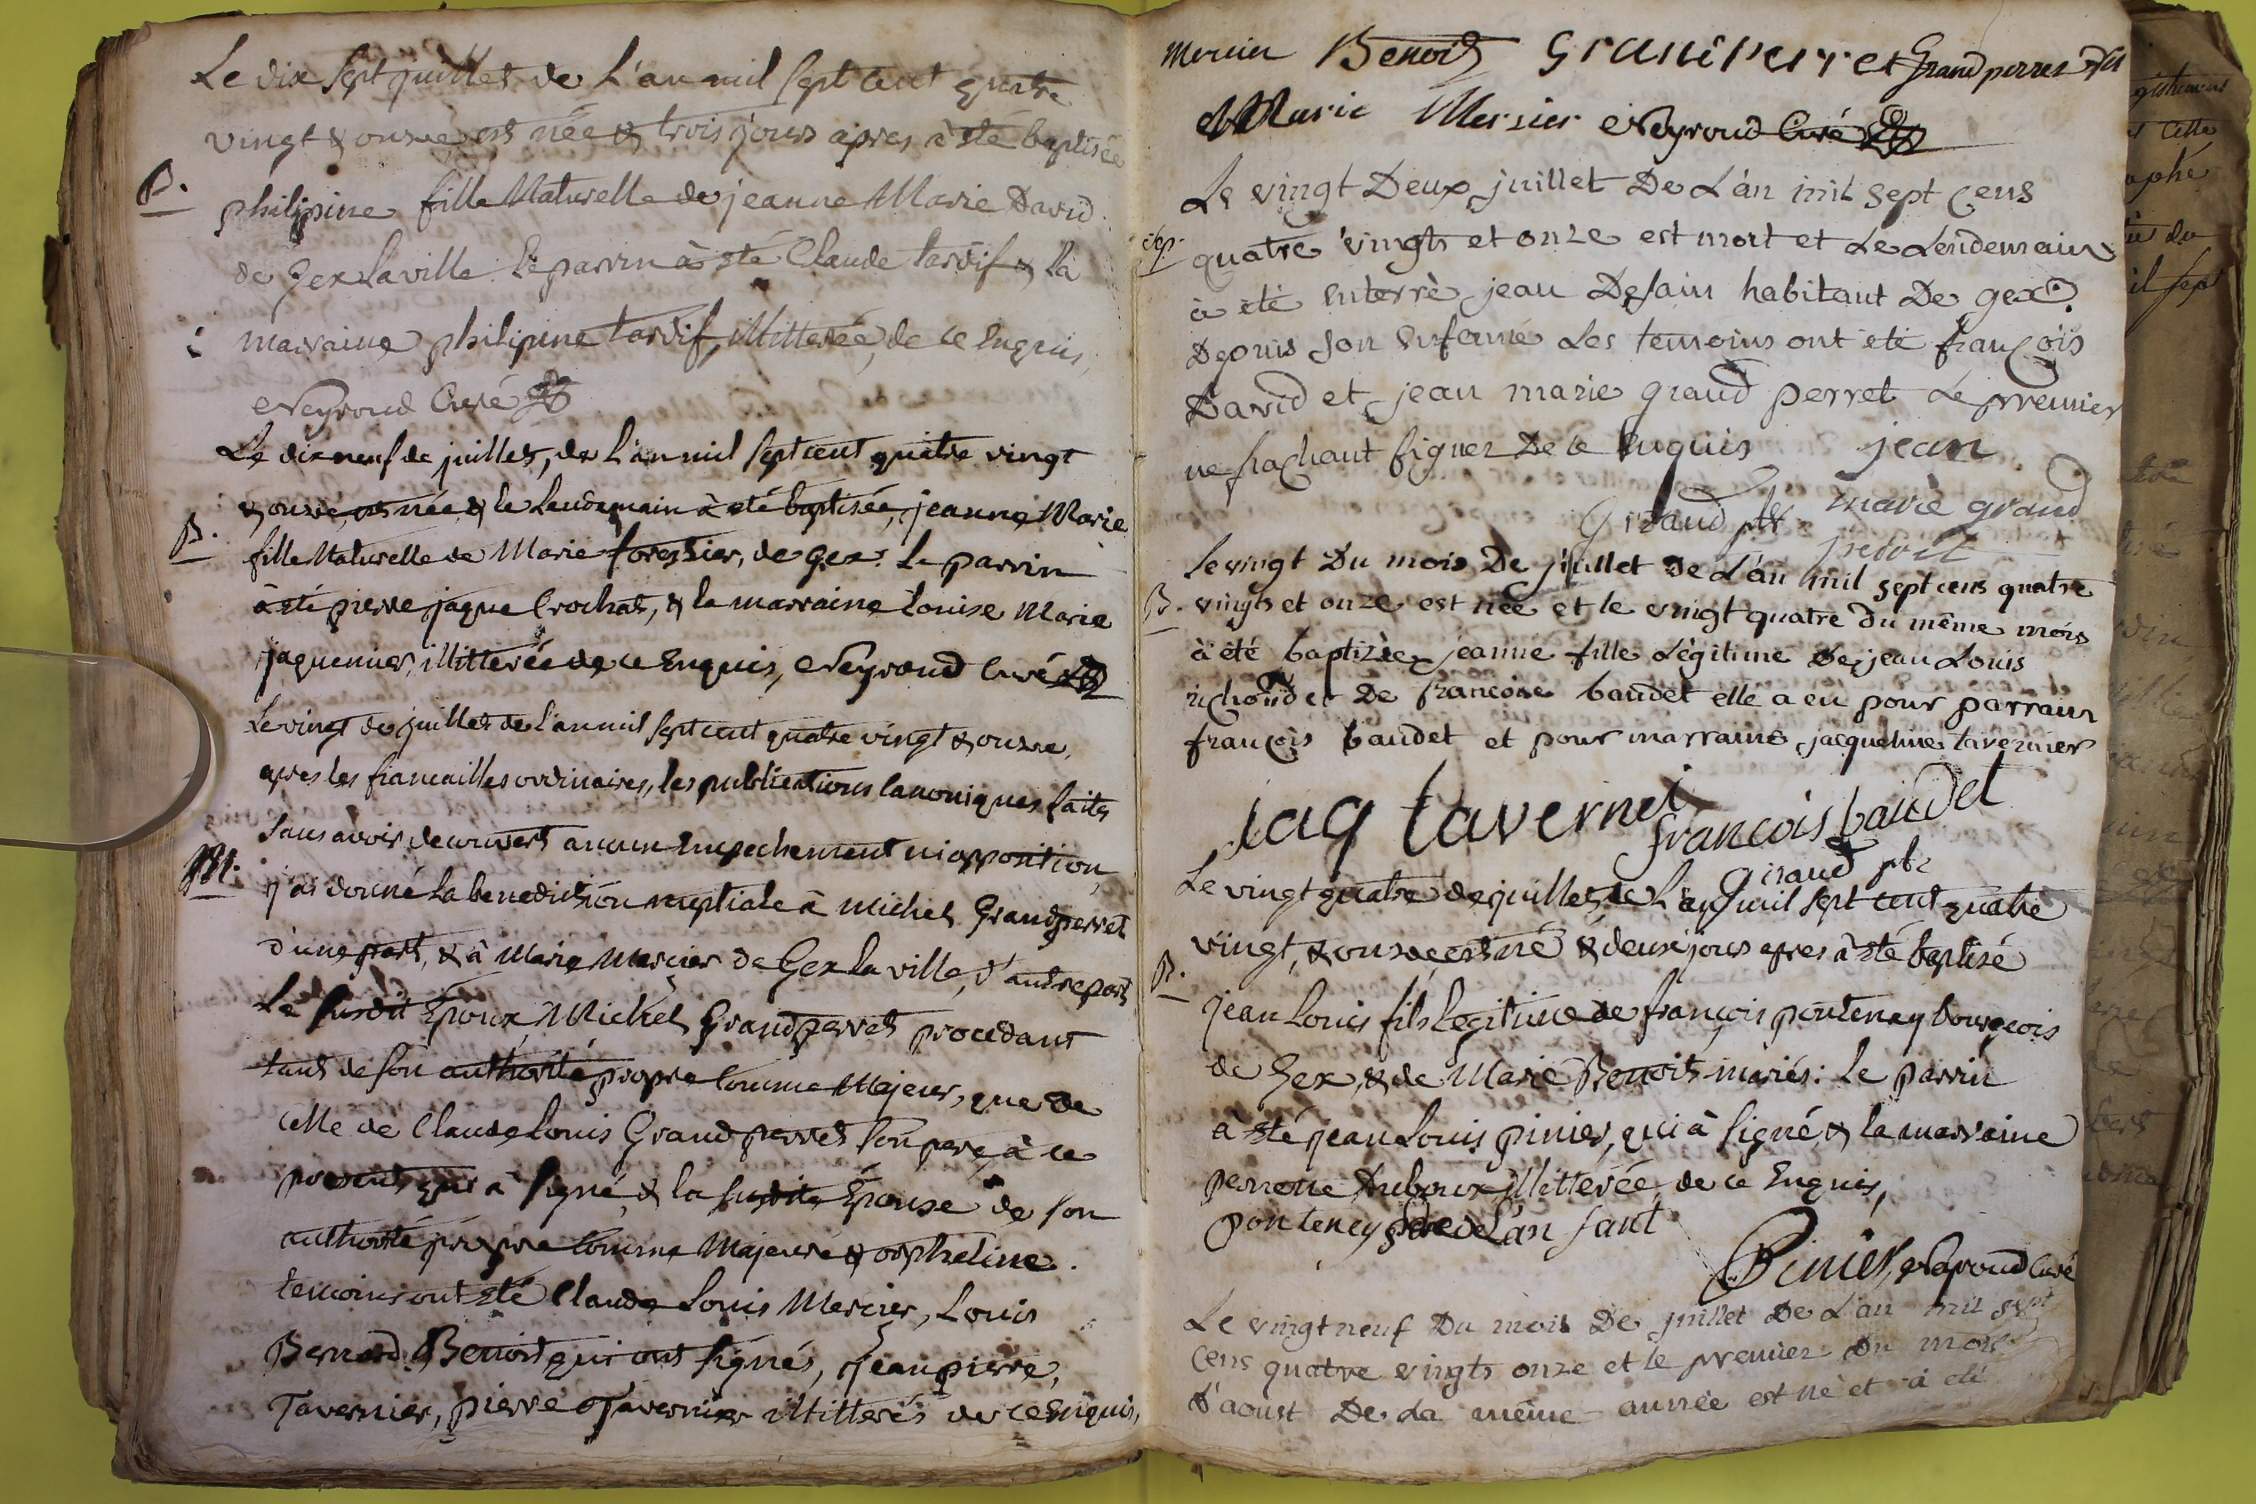 Le dix sept juillet de L'an mil sept cent quatre
vingt & onze est née & trois jours apres à été baptisée
B.
philipine fille Naturelle de jeanne Marie David
de Gex la ville. Le parrin à été Claude tardif & la
marraine philipine tardif, illitterée, de ce Enquis,
Neyroud Curé
Le dix neuf de juillet, de L'an mil sept cent quatre vingt
& onze, est née & le Lendemain à été baptisée, jeanne Marie
B.
fille Naturelle de Marie forestier, de Gex. Le parrin
à été pierre jaque Crochat, & la marraine Louise Marie
jaquemier, illitterée de ce Enquis, Neyroud Curé
Le vingt de juillet de L'an mil sept cent quatre vingt & onze,
apres les fiancailles ordinaires, les publications canoniques faites
sans avoir decouvert aucun Empechement ni opposition,
M.
j'ai donné la benediction nuptiale à Michel Grandperret
d'une part, & à Marie Mercier de Gex la ville, d'autre part
Le susdit Epoux Michel Grandperret procedant
tant de son authorité propre comme Majeur, que de
celle de Claude Louis Grandperret son pere, à ce
present, qui à signé, & la susdite Epouse de son
authorité propre comme Majeure & orpheline.
temoins ont été Claude Louis Mercier, Louis
Bernard Benoit qui ont signés, jean pierre,
Tavernier, pierre Tavernier illitterés de ce Enquis,
Mercier Benoit Grandperret Grand perret
Marie Mersier Neyroud Curé
Le vingt Deux juillet De L'àn mil sept cens
sep.
quatre vingts et onze est mort et Le Lendemain
à été Enterrè jean Defain habitant De gex
Depuis son Enfance Les temoins ont été françois
David et jean marie grand perret Le premier
ne sachant signer De ce Enquis jean
marie grand
Giraud ptre perret
le vingt Du mois De juillet De L'àn mil sept cens quatre
B.
vingts et onze est née et le vingt quatre du même mois
à été baptizée jeanne fille Légitime de jean Louis
richond et De francoise baudet elle a eu pour parrain
françois baudet et pour marraine jacqueline tavernier
jaq tavernei
francois baudet
Giraud ptre
Le vingt quatre de juillet, de L'an mil sept cent quatre
vingt, & onze, est né & deux jours apres à été baptisé
B.
jean Louis fils Legitime de françois pontenay bourgeois
de Gex & de Marie Benoit mariés: Le parrin
à été jean Louis pinier, qui à signé & la marraine
pernette Duboux illitterée, de ce Enquis,
ponteney pere de L'an fant
Pinier, Neyroud Curé
Le vingt neuf Du mois De juillet De L'an mil sept
cens quatre vingts onze et le premier Du mois
D'aoust De La même année est né et à été